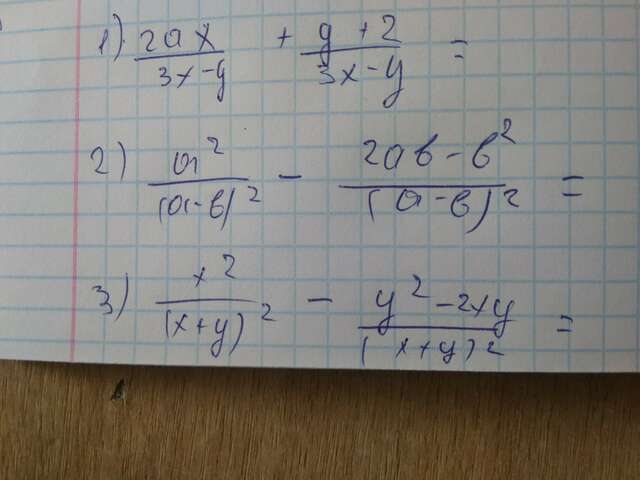 1) (2ax)/(3x-y) + (y+2)/(3x-y) =
2) (a²)/((a-b)²) - (2ab-b²)/((a-b)²) =
3) (x²)/((x+y)²) - (y²-2xy)/((x+y)²) =